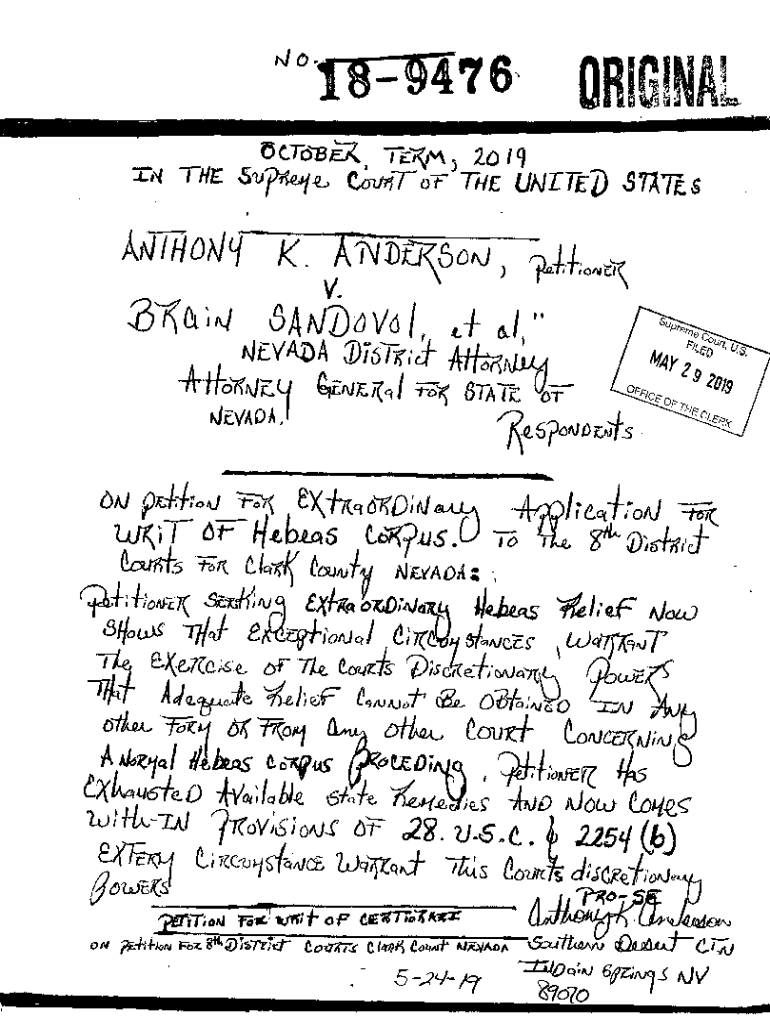 No. 18-9476 ORIGINAL
OCTOBER, TERM, 2019
IN THE Supreme Court OF THE UNITED STATES
ANTHONY K. ANDERSON, Petitioner
V.
BRAIN SANDOVOl, et al,"
NEVADA District Attorney
Attorney General FOR STATE OF
NEVADA.
Respondents
Supreme Court, U.S.
FILED
MAY 29 2019
OFFICE OF THE CLERK
ON petition FOR EXtraorDinary Application FOR
WRIT OF Hebeas CORPUS. TO The 8th District
Courts FOR Clark County NEVADA:
Petitioner Seeking EXtraorDinary Hebeas Relief Now
SHows THat Exceptional Circumstances, WarranT
The Exercise OF The Courts Discretionary Powers
THat Adequate Relief Cannot Be Obtained IN Any
other Form OR From any other Court Concerning
A Normal Hebeas corpus Proceding, Petitioner Has
EXhausteD Available state Remedies AND Now Comes
With-IN Provisions OF 28. U.S.C. § 2254 (b)
EXTERM Circumstance Warrant This Courts discretionary
Powers
PRO-SE
PETITION FOR WRIT OF CERTIORARI Anthony K. Anderson
ON Petition FOR 8th District Courts Clark Count NEVADA Southern Desert CTN
5-24-19 INDain Springs NV
89070